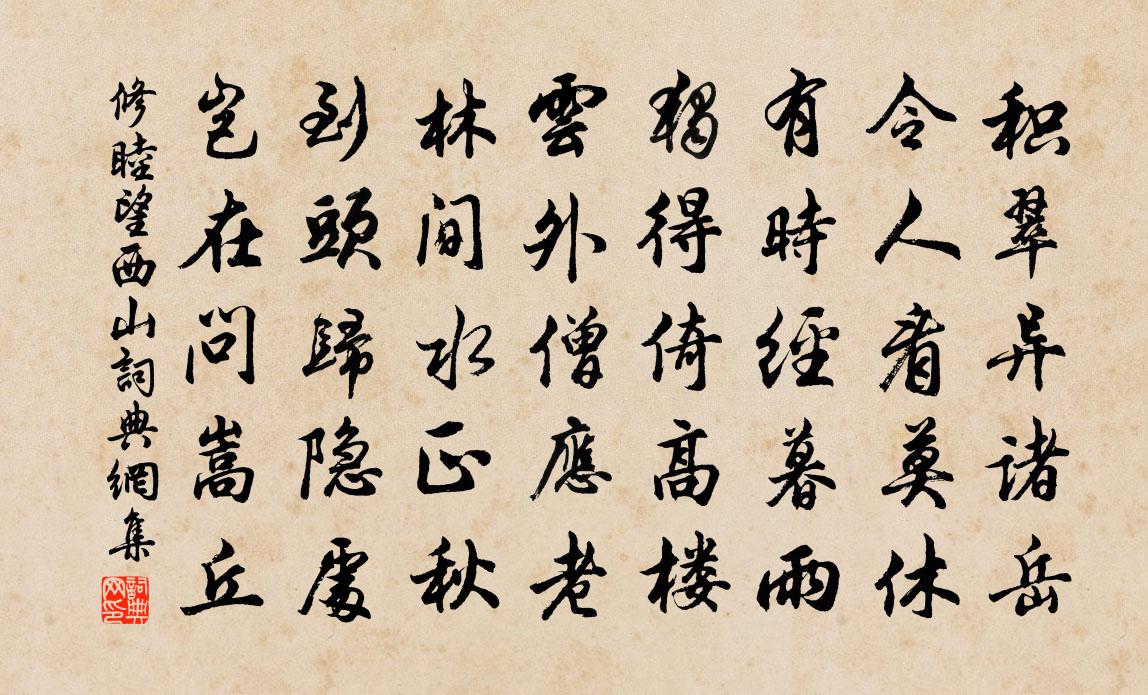 积翠异诸岳
令人看莫休
有時經暮雨
獨得倚高楼
雲外僧應老
林间水正秋
到頭歸隐處
岂在问嵩丘
修睦望西山詞典網集
詞典网印